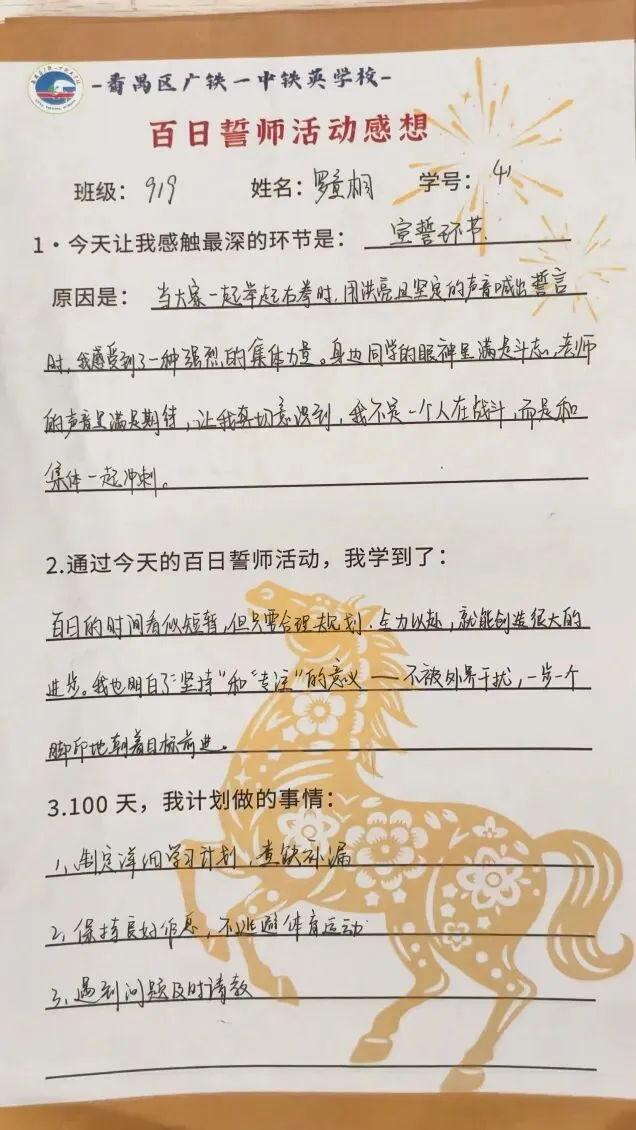 -番禺区广铁一中铁英学校-
百日誓师活动感想
班级：919 姓名：罗童桐 学号：41
1·今天让我感触最深的环节是：宣誓环节.
原因是：当大家一起举起右拳时,用洪亮且坚定的声音喊出誓言
时,我感受到了一种强烈的集体力量。身边同学的眼神里满是斗志,老师
的声音里满是期待,让我真切意识到,我不是一个人在战斗,而是和
集体一起冲刺。
2.通过今天的百日誓师活动，我学到了：
百日的时间看似短暂,但只要合理规划.全力以赴,就能创造很大的
进步。我也明白了“坚持”和“专注”的意义——不被外界干扰,一步一个
脚印地朝着目标前进。
3.100 天，我计划做的事情：
1、制定详细学习计划,查缺补漏
2、保持良好作息,不逃避体育运动
3、遇到问题及时请教